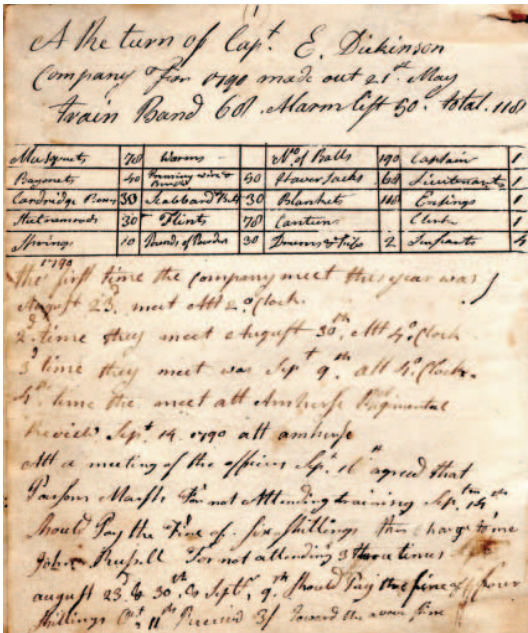 (1)
A Return of Capt. E. Dickinson
Company For 1790 made out 21st May
Train Band 68. Alarm list 50. total. 118
Musquets 78 Worms No. of Balls 190 Captain 1
Bayonets 40 Priming wire & Brushes 50 Haversacks 68 Lieutenants 1
Cardridge Boxes 30 Scabbard & Belts 30 Blankets 118 Ensings 1
30 Flints 78 Canteens Clerk 1
10 Pounds of Powder 30 Drums & fifes 2 4
1790
The first time the Company meet this year was
August 23d. meet Att 2 o Clock
2d. time they meet August 30th. Att 4 o Clock
3d time they meet was Sept 9th. att 4 o Clock.
4th time the meet att Amherst Regimental
Review Sept. 14. 1790 att amherst
Att a meeting of the officers Sept. 16th agreed that
Parsons Marsh For not Attending training Sept. 14th
Should Pay the Fine of Six Shillings this Charge to me
John Russell For not attending 3 three times
august 23. & 30th. & Septr. 9th. Should Pay the fine of four
Shillings Oct. 11th Received 3/ toward the fine